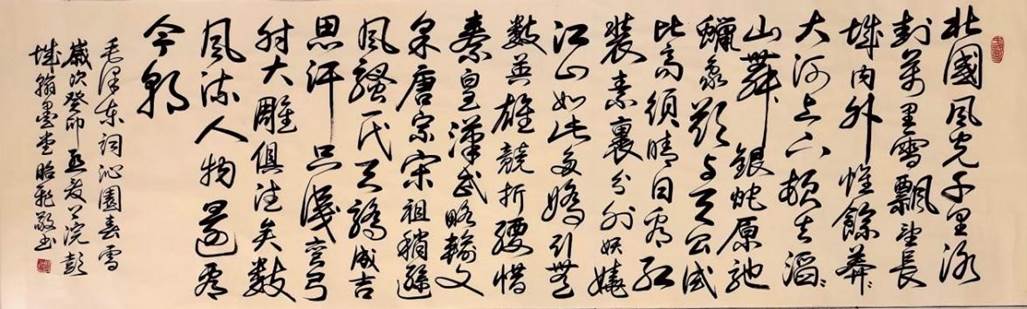 北國風光千里冰
封萬里雪飄望長
城內外惟餘莽々
大河上下頓失滔々
山舞銀蛇原馳
蠟象欲與天公試
比高須晴日看紅
裝素裹分外妖嬈
江山如此多嬌引無
數英雄競折腰惜
秦皇漢武略輸文
采唐宗宋祖稍遜
風騷一代天驕成吉
思汗只識彎弓
射大雕俱往矣數
風流人物還看
今朝
毛澤東詞沁園春雪
歲次癸卯浣彭
城翰墨堂敬書